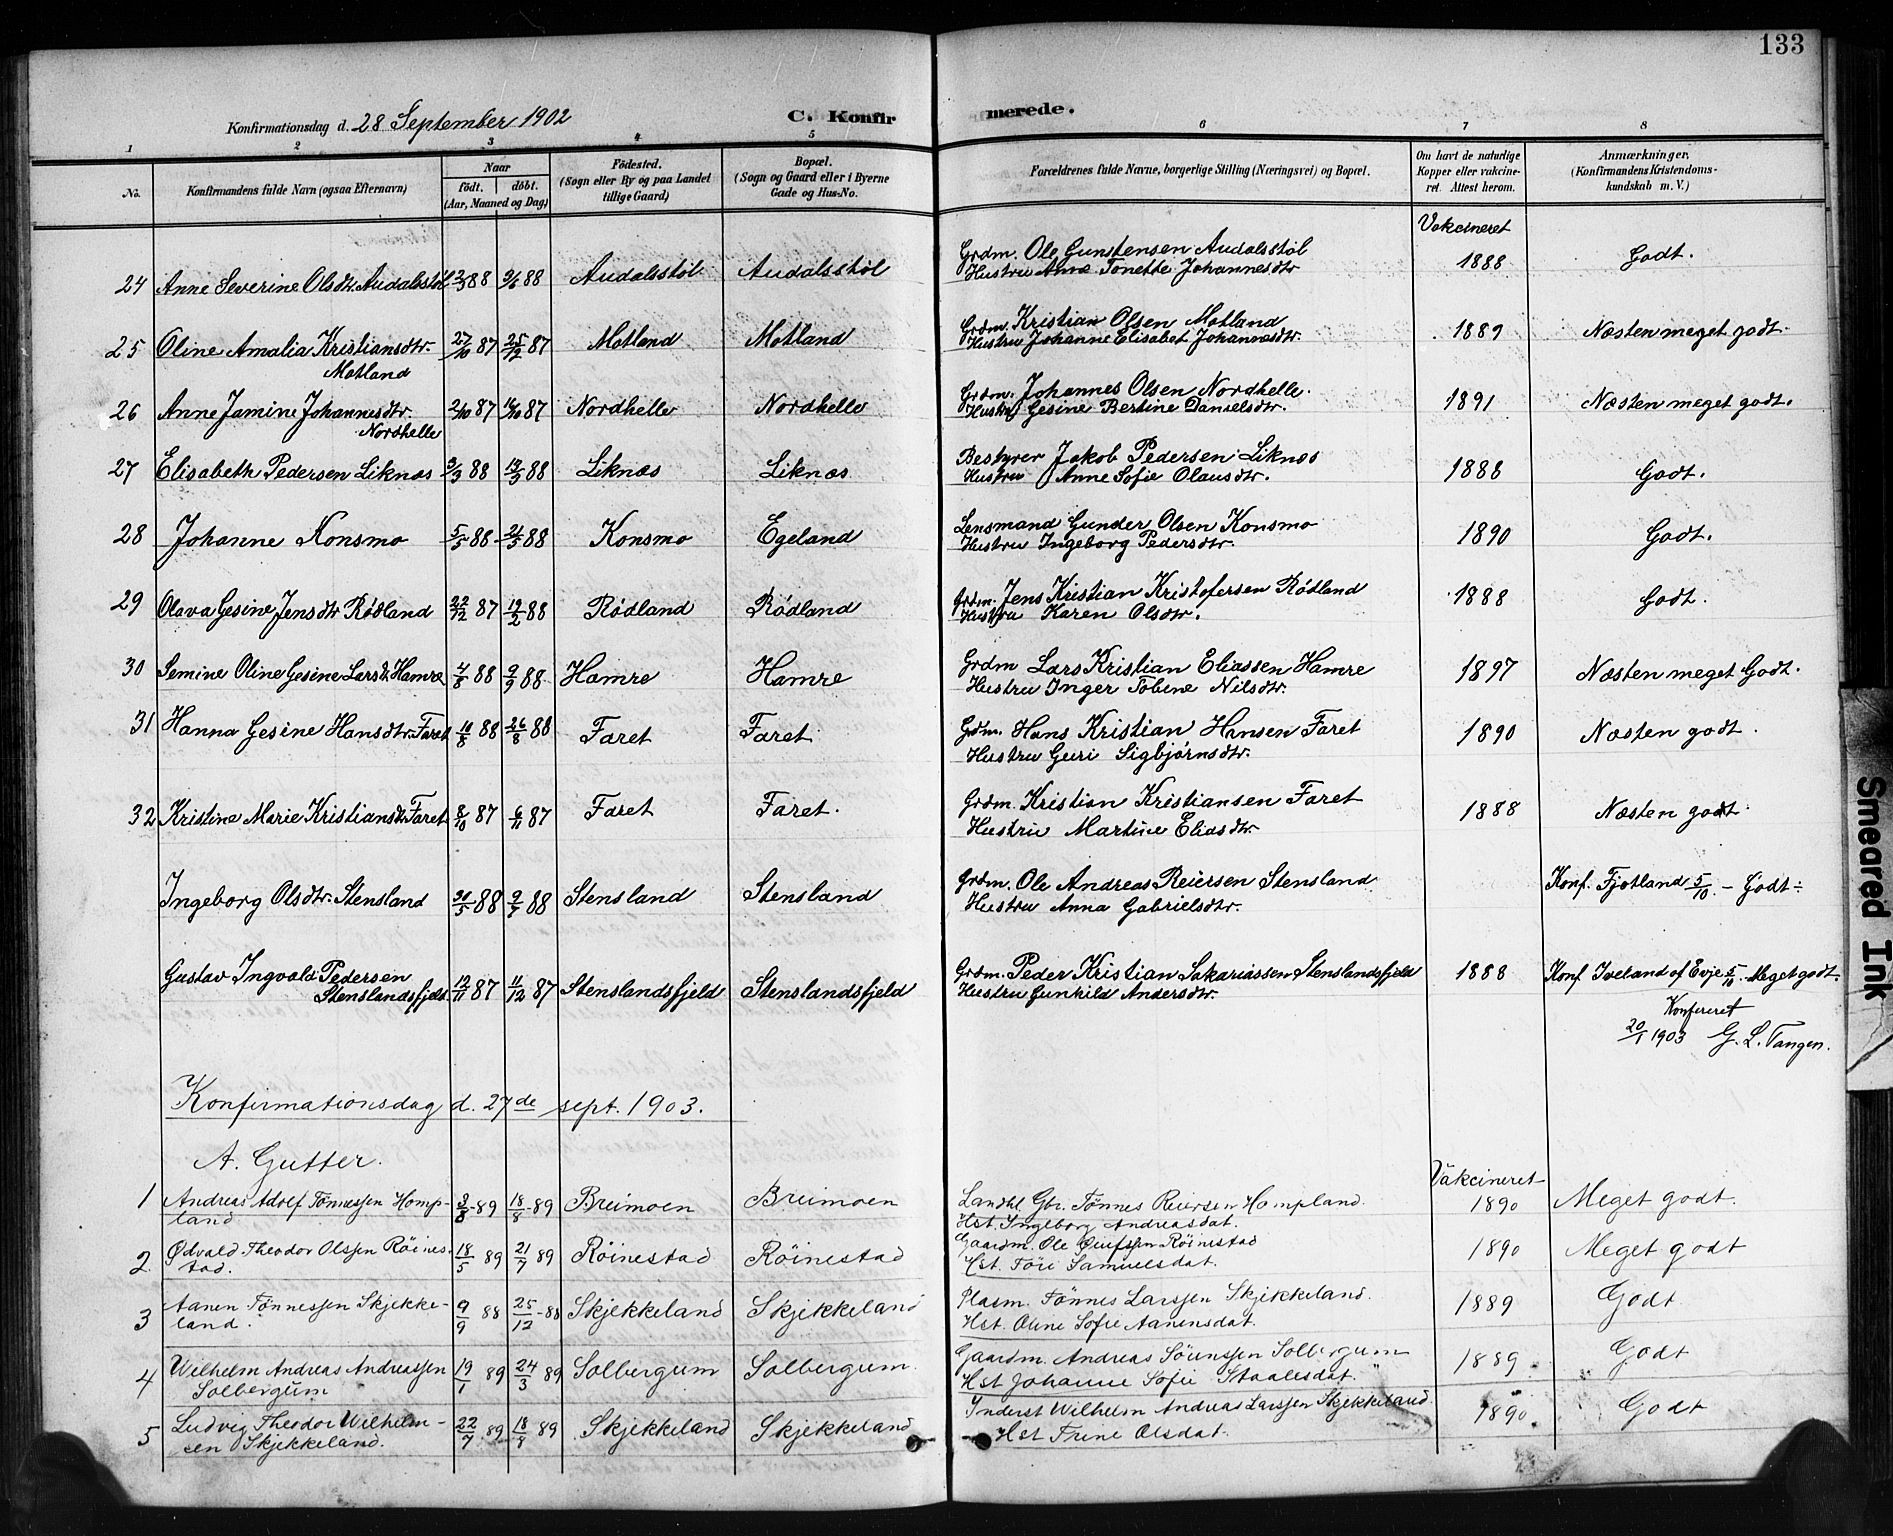 133
Konfirmationsdag d. 28 September 1902
C. Konfirmerede.
1 2 3 4 5 6 7 8
No. Konfirmandens fulde Navn (ogsaa Efternavn) Naar født. døbt. (Aar, Maaned og Dag) Födested. (Sogn eller By og paa Landet tillige Gaard) Bopæl. (Sogn og Gaard eller i Byerne Gade og Hus-No. Forældrenes fulde Navne, borgerlige Stilling (Næringsvei) og Bopæl. Om havt de naturlige Kopper eller vakcineret. Attest herom. Anmærkninger. (Konfirmandens Kristendomskundskab m. V.)
Vakcineret
24 Anne Severine Olsdtr. Audalsstøl 2/3 88 3/6 88 Audalsstøl Audalsstøl Grdm. Ole Gunstensen Audalsstøl 1888 Godt.
Hustru Anne Tonette Johannesdtr
25 Oline Amalia Kristiansdtr. 27/10 87 25/12 87 Motland Motland Grdm. Kristian Olsen Motland 1889 Næsten meget godt.
Motland Hustru Johanne Elisabet Johannesdtr.
26 Anne Jamine Johannesdtr. 2/10 87 16/10 87 Nordhelle Nordhelle Grdm. Johannes Olsen Nordhelle. 1891 Næsten meget godt.
Nordhelle Hustru Gesine Bertine Danielsdtr.
27 Elisabeth Pedersen Liknæs 3/3 88 13/5 88 Liknæs Liknæs Bestyrer Jakob Pedersen Liknæs 1888 Godt.
Hustru Anne Sofie Olausdtr.
28 Johanne Konsmo 5/5 88 21/5 88 Konsmo Egeland Lensmand Gunder Olsen Konsmo 1890 Godt.
Hustru Ingeborg Pedersdtr.
29 Olava Gesine Jensdtr Rødland 22/12 87 12/2 88 Rødland Rødland Grdm. Jens Kristian Kristofersen Rødland 1888 Godt.
Hustru Karen Olsdtr.
30 Semine Oline Gesine Larsdt. Hamre 4/8 88 9/9 88 Hamre Hamre Grdm Lars Kristian Eliassen Hamre 1897 Næsten meget Godt.
Hustru Inger Tobine Nilsdtr.
31 Hanna Gesine Hansdtr. Faret 10/8 88 26/8 88 Faret Faret Grdm. Hans Kristian Hansen Faret 1890 Næsten godt.
Hustru Guri Sigbjørnsdtr.
32 Kristine Marie Kristiansdt. Faret 8/10 87 6/11 87 Faret Faret. Grdm. Kristian Kristiansen Faret 1888 Næsten godt
Hustru Martine Eliasdtr
Ingeborg Olsdtr. Stensland 30/5 88 9/7 88 Stensland Stensland Grdm. Ole Andreas Reiersen Stensland Konf. Fjotland 5/10 – Godt
Hustru Anna Gabrielsdtr.
Gustav Ingvald Pedersen 12/11 87 11/12 87 Stenslandsfjeld Stenslandsfjeld Grdm. Peder Kristian Sakariassen Stenslandsfjeld 1888 Konf. Iveland af Evje 5/10. Meget godt.
Stenslandsfjeld Hustru Gunhild Andersdtr.
Konfereret
20/1 1903 G. L. Tangen.
Konfirmationsdag d. 27de sept. 1903.
A. Gutter.
Vakcineret
1 Andreas Adolf Tønnessen Homp- 3/8 89 18/8 89 Breimoen Breimoen Landhl. Gbr. Tønnes Reiersen Hompland. 1890 Meget godt.
land Hst. Ingeborg Andreasdat.
2 Ødvald Theodor Olssen Röines- 18/5 89 21/7 89 Röinestad Röinestad Gaardm. Ole Røinestad 1890 Meget godt
tad. Hst. Tori Samuelsdat.
3 Aanen Tønnessen Skjekke- 9/9 88 25/12 88 Skjekkeland Skjekkeland Plasm. Tönnes Larssen Skjekkeland. 1889 Godt
land. Hst. Oline Sofie Aanensdat.
4 Wilhelm Andreas Andreassen 19/1 89 24/3 89 Solbergum Solbergum. Gaardm. Andreas Sörenssen Solbergum 1889 Godt
Solbergum Hst Johanne Sofie Staalesdat.
5 Ludvig Theodor Wilhelm- 22/7 89 18/8 89 Skjekkeland Skjekkeland Inderst Wilhelm Andreas Larssen Skjekkeland. 1890. Godt
sen Skjekkeland. Hst Trine Olsdat.
Smeared Ink